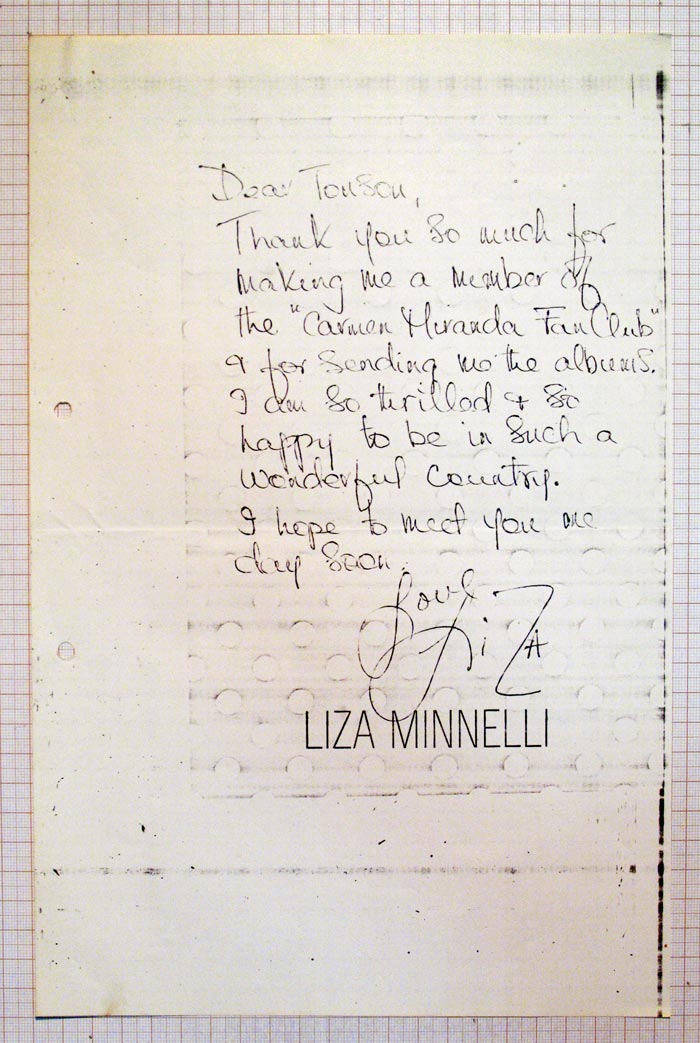 Dear Tonson,
Thank you so much for
making me a member of
the "Carmen Miranda Fan Club"
& for sending me the albums.
I am so thrilled & so
happy to be in such a
wonderful country.
I hope to meet you one
day soon.
Love
LiZA
LIZA MINNELLI